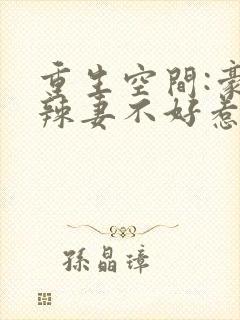 重生空間:豪
辣妻不好惹
孫晶璋